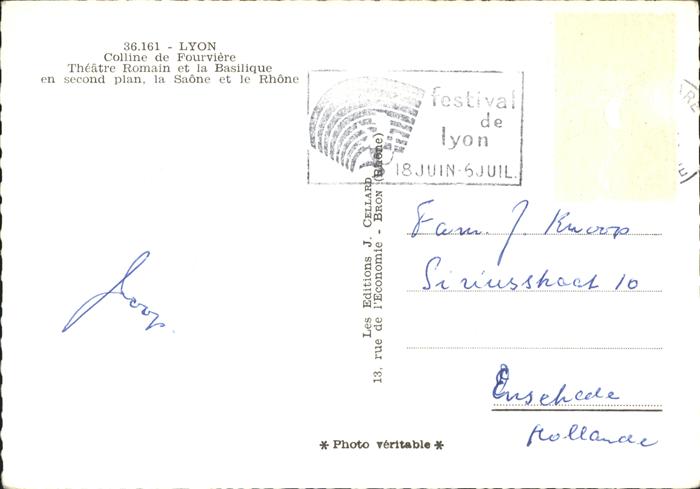 36.161 - LYON
Colline de Fourvière
Théâtre Romain et la Basilique
en second plan, la Saône et le Rhône
festival
de
lyon
18 JUIN - 5 JUIL.
Les Editions J. CELLARD
13, rue de l'Economie - BRON (Rhône)
Fam. J. Knoop
Siriusstraat 10
Enschede
Hollande
* Photo véritable *